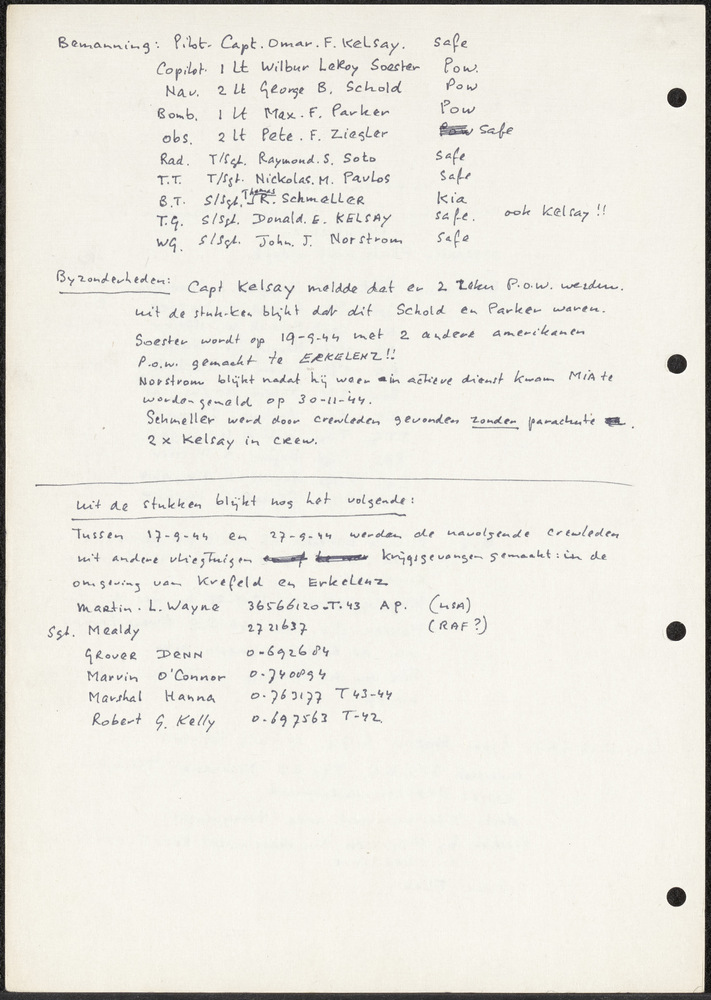 Bemanning: Pilot. Capt. Omar. F. Kelsay. safe
Copilot. 1 Lt Wilbur LeRoy Soester Pow.
Nav. 2 Lt George B. Schold Pow
Bomb. 1 Lt Max. F. Parker Pow
obs. 2 Lt Pete. F. Ziegler safe
Rad. T/Sgt. Raymond. S. Soto safe
T.T. T/Sgt. Nickolas. M. Pavlos safe
B.T. S/Sgt. Thomas JR. Schmeller Kia
T.G. S/Sgt. Donald. E. KELSAY safe. ook Kelsay !!
WG. S/Sgt. John. J. Norstrom safe
Byzonderheden: Capt Kelsay meldde dat er 2 zeker P.o.w. werden.
uit de stukken blijkt dat dit Schold en Parker waren.
Soester wordt op 19-9-44 met 2 andere amerikanen
P.o.w. gemaakt te ERKELENZ !!
Norstrom blijkt nadat hij weer in actieve dienst kwam MIA te
worden gemeld op 30-11-44.
Schmeller werd door crewleden gevonden zonder parachute
2 x Kelsay in crew.
uit de stukken blijkt nog het volgende:
Tussen 17-9-44 en 27-9-44 werden de navolgende crewleden
uit andere vliegtuigen krijgsgevangen gemaakt: in de
omgeving van Krefeld en Erkelenz
Martin. L. Wayne 36566120-T.43 AP. (USA)
Sgt. Mealdy 2721637 (RAF?)
GROVER DENN 0-692684
Marvin O'Connor 0-740894
Marshal Hanna 0-763177 T43-44
Robert G. Kelly 0-697563 T-42